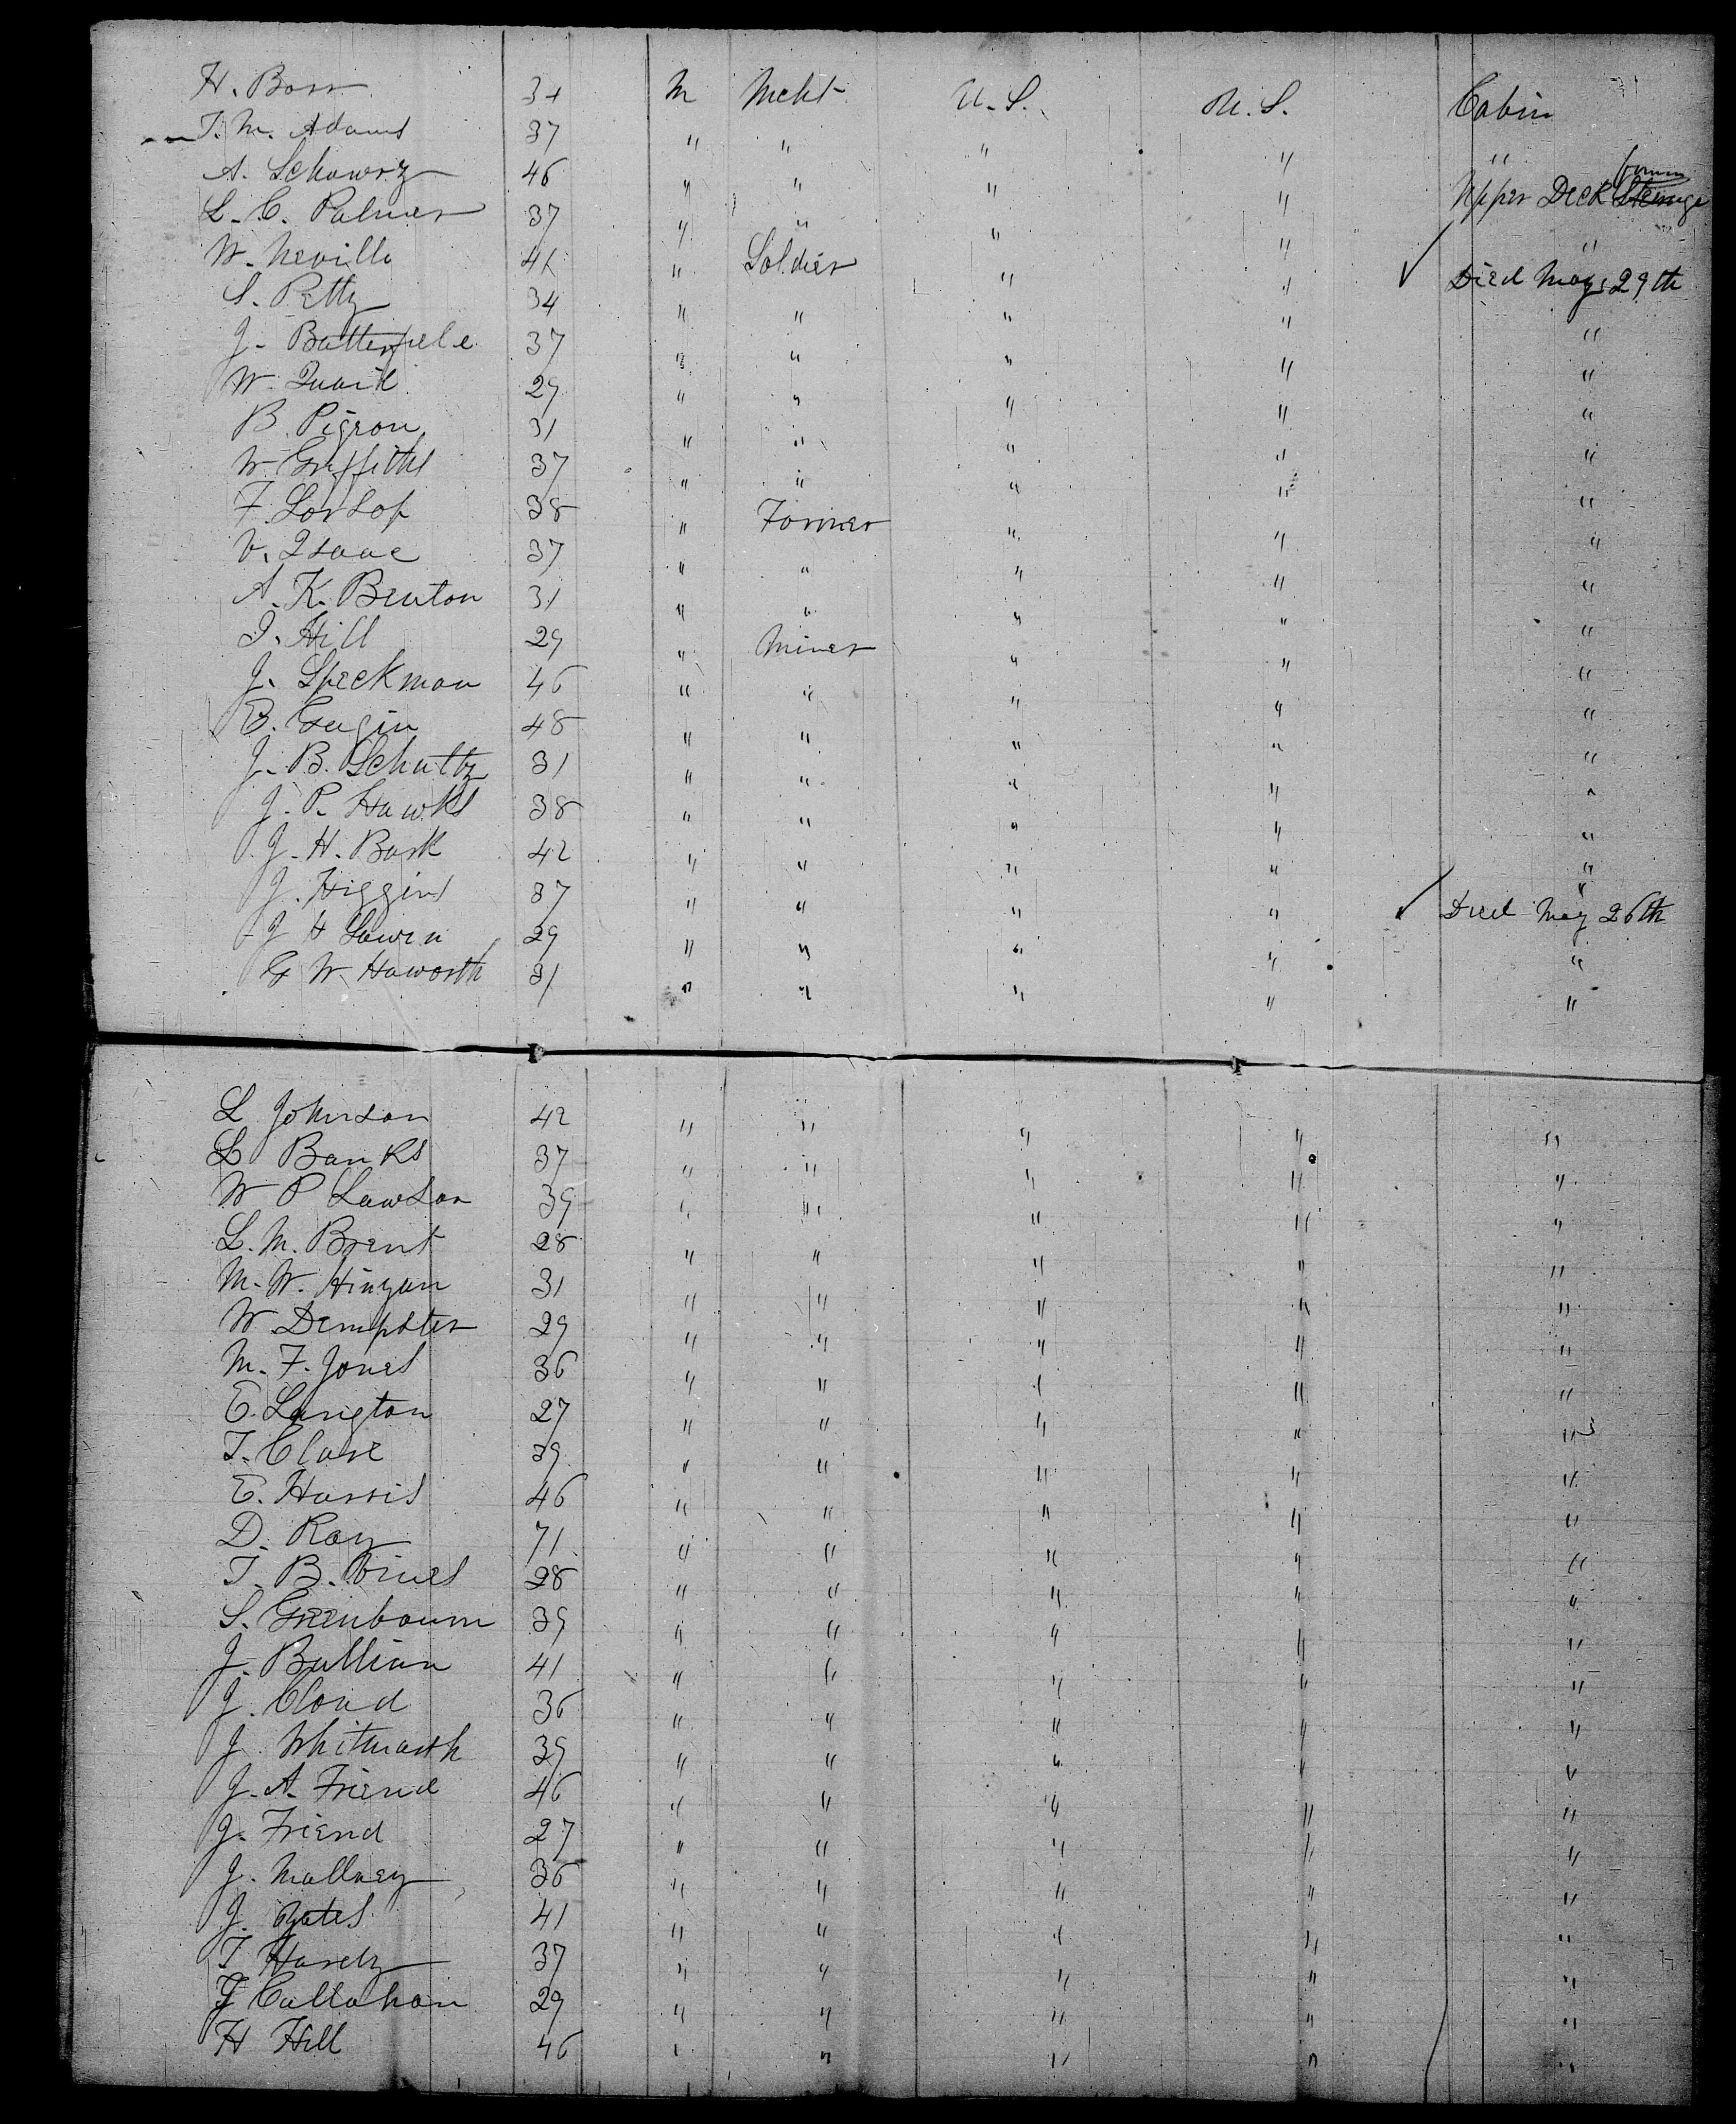 H. Barr 34 M Mcht U.S. U.S. Cabin
J. M. Adams 37 " " " " "
A. Schawrz 46 " " " " Upper Deck
L. C. Palmer 37 " " " " "
W. Neville 41 " Soldier " " Died May 29th
S. Petty 34 " " " " "
J. Butterfield 37 " " " " "
W. Quaid 29 " " " " "
B. Pigron 31 " " " " "
W Griffiths 37 " " " " "
F. 38 " Farmer " " "
V. Isaac 37 " " " " "
A. K. Benton 31 " " " " "
J. Hill 29 " Miner " " "
J. Speckman 46 " " " " "
B. 48 " " " " "
J. B. Schultz 31 " " " " "
J. P. Hawks 38 " " " " "
J. H. Bark 42 " " " " "
J. Higgins 37 " " " " Died May 26th
J H 29 " " " " "
G W Haworth 31 " " " " "
L Johnson 42 " " " " "
L Banks 37 " " " " "
W P Lawson 39 " " " " "
L. M. Brent 28 " " " " "
M. W. 31 " " " " "
W Dempster 29 " " " " "
M. F. Jones 36 " " " " "
E. Langton 27 " " " " "
T. Clare 39 " " " " "
E. Harris 46 " " " " "
D. Ray 71 " " " " "
T. B. 28 " " " " "
S. Greenbaum 39 " " " " "
J. Bullian 41 " " " " "
J. Cloud 36 " " " " "
J Whitmarsh 39 " " " " "
J. A. Friend 46 " " " " "
J. Friend 27 " " " " "
J. Mallney 36 " " " " "
J. Yates 41 " " " " "
T Hardy 37 " " " " "
J Callahan 29 " " " " "
H Hill 46 " " " " "